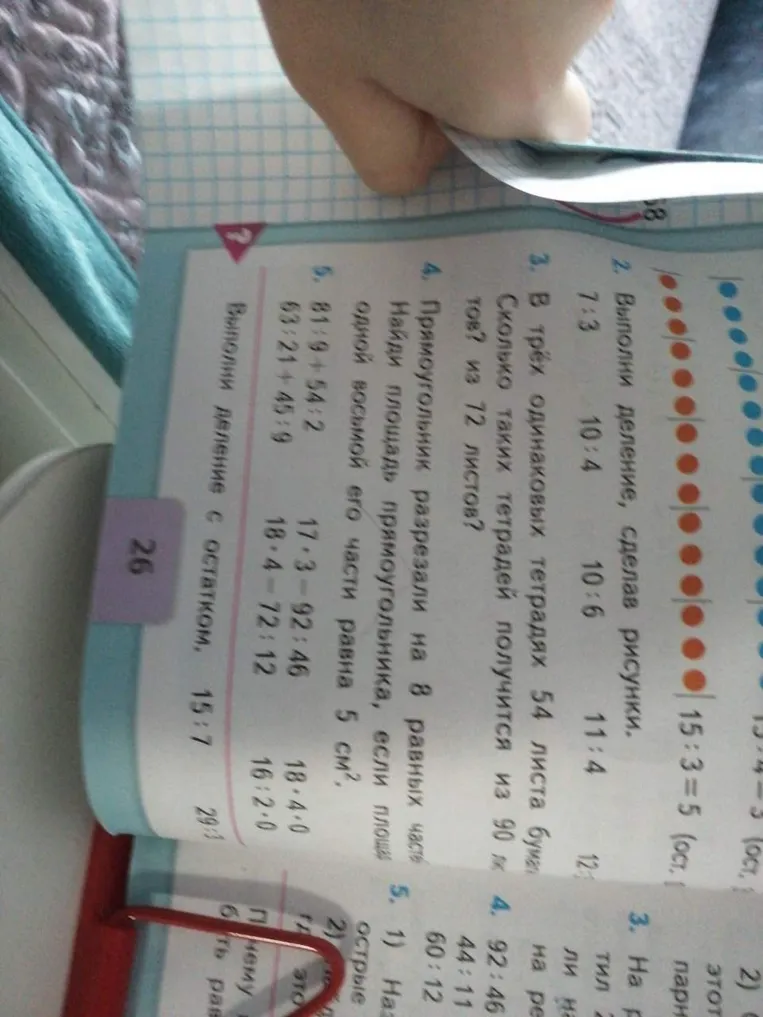 15 : 3 = 5 (ост.
2. Выполни деление, сделав рисунки.
7 : 3 10 : 4 10 : 6 11 : 4 12 :
3. В трёх одинаковых тетрадях 54 листа
Сколько таких тетрадей получится из 90
тов? из 72 листов?
4. Прямоугольник разрезали на 8 равных
Найди площадь прямоугольника, если
одной восьмой его части равна 5 см².
5. 81 : 9 + 54 : 2 17 · 3 − 92 : 46 18 · 4 · 0
63 : 21 + 45 : 9 18 · 4 − 72 : 12 16 : 2 · 0
? Выполни деление с остатком. 15 : 7 29 :
26
2)
этот
парн
3. На
тил
ли
на ре
4. 92 : 46
44 : 11
60 : 12
5. 1) Наз
острые
2)